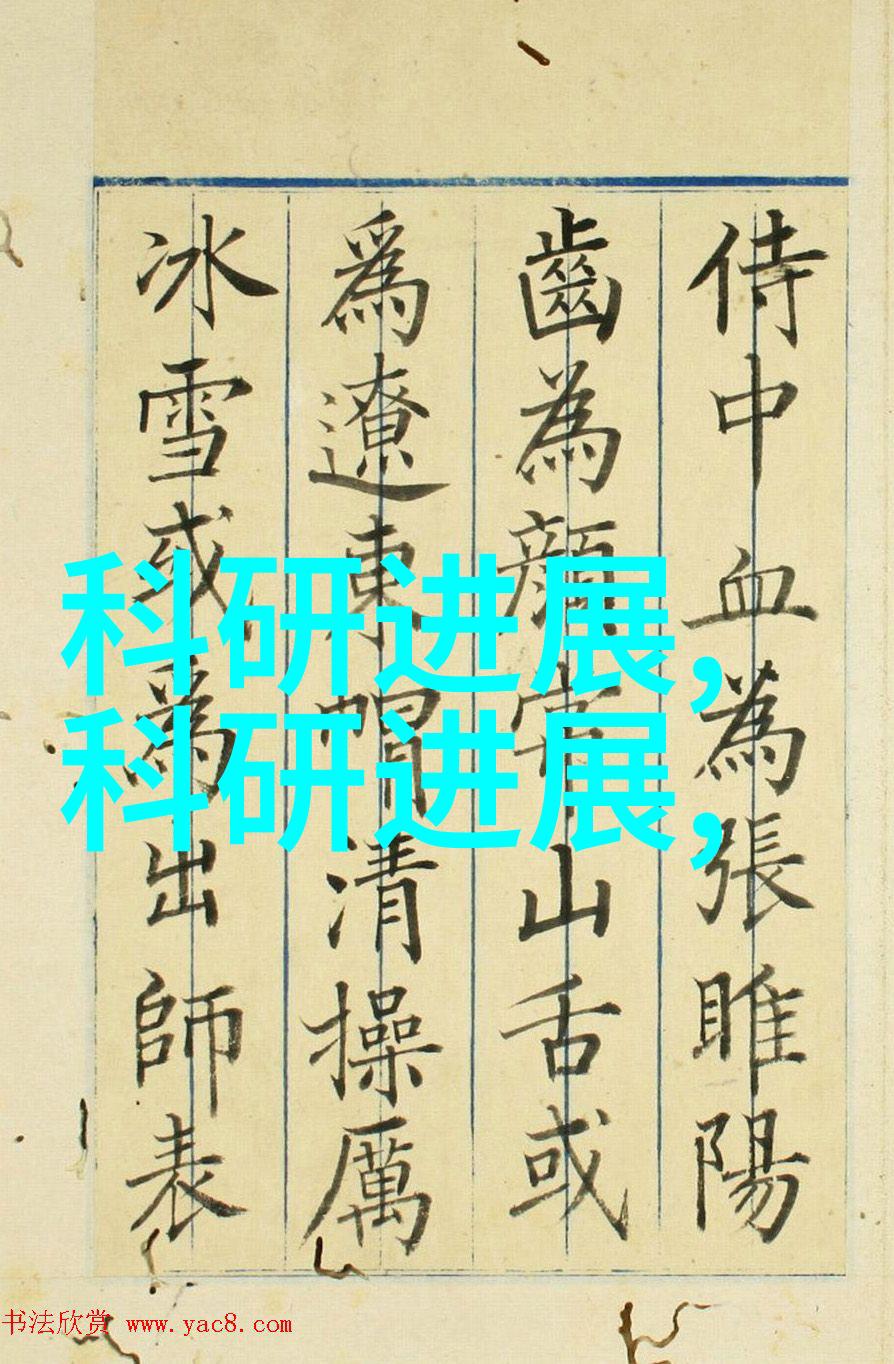 侍中血為張睢陽
齒為顏常山舌或
爲遼東帽清操厲
冰雪或爲出師表
科研进展,
科研进展,
书法欣赏 www.yac8.com